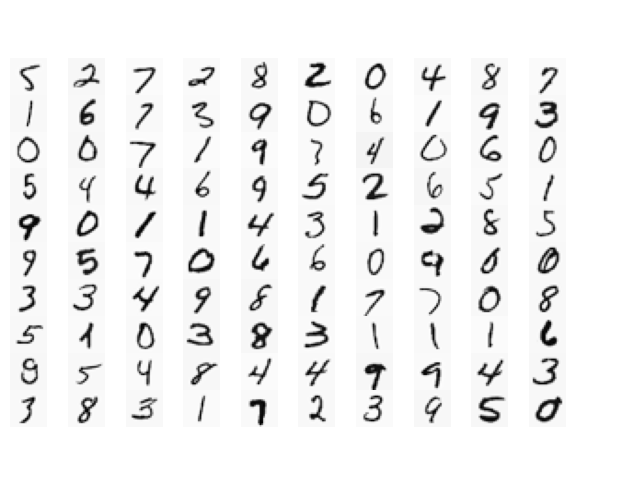 5 2 7 2 8 2 0 4 8 7
1 6 7 3 9 0 6 1 9 3
0 0 7 1 9 3 4 0 6 0
5 4 4 6 9 5 2 6 5 1
9 0 1 1 4 3 1 2 8 5
9 5 7 0 6 6 0 9 0 0
3 3 4 9 8 1 7 7 0 8
5 1 0 3 8 3 1 1 1 6
9 5 4 8 4 4 9 9 4 3
3 8 3 1 7 2 3 9 5 0